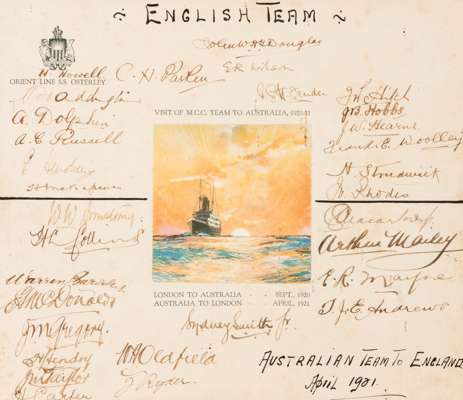 ~ ENGLISH TEAM ~
John W.H.T. Douglas
E.R. Wilson
H. Howell
C. H. Parkin
ORIENT LINE S.S. OSTERLEY
A Dolphin
A. C. Russell
P.G.H. Fender
VISIT OF M.C.C. TEAM TO AUSTRALIA, 1920-21
J.B. Hobbs
J.W. Hearne
Frank E. Woolley
H. Strudwick
W. Rhodes
W W Armstrong
H L Collins
Warren Bardsley
E.A. McDonald
J M Gregory
H Hendry
J M Taylor
H Carter
LONDON TO AUSTRALIA - - SEPT., 1920
AUSTRALIA TO LONDON - - APRIL, 1921
Sydney Smith Jr.
W A Oldfield
J. Ryder
Arthur Mailey
E. R. Mayne
T. J. E. Andrews
AUSTRALIAN TEAM TO ENGLAND
April 1921.